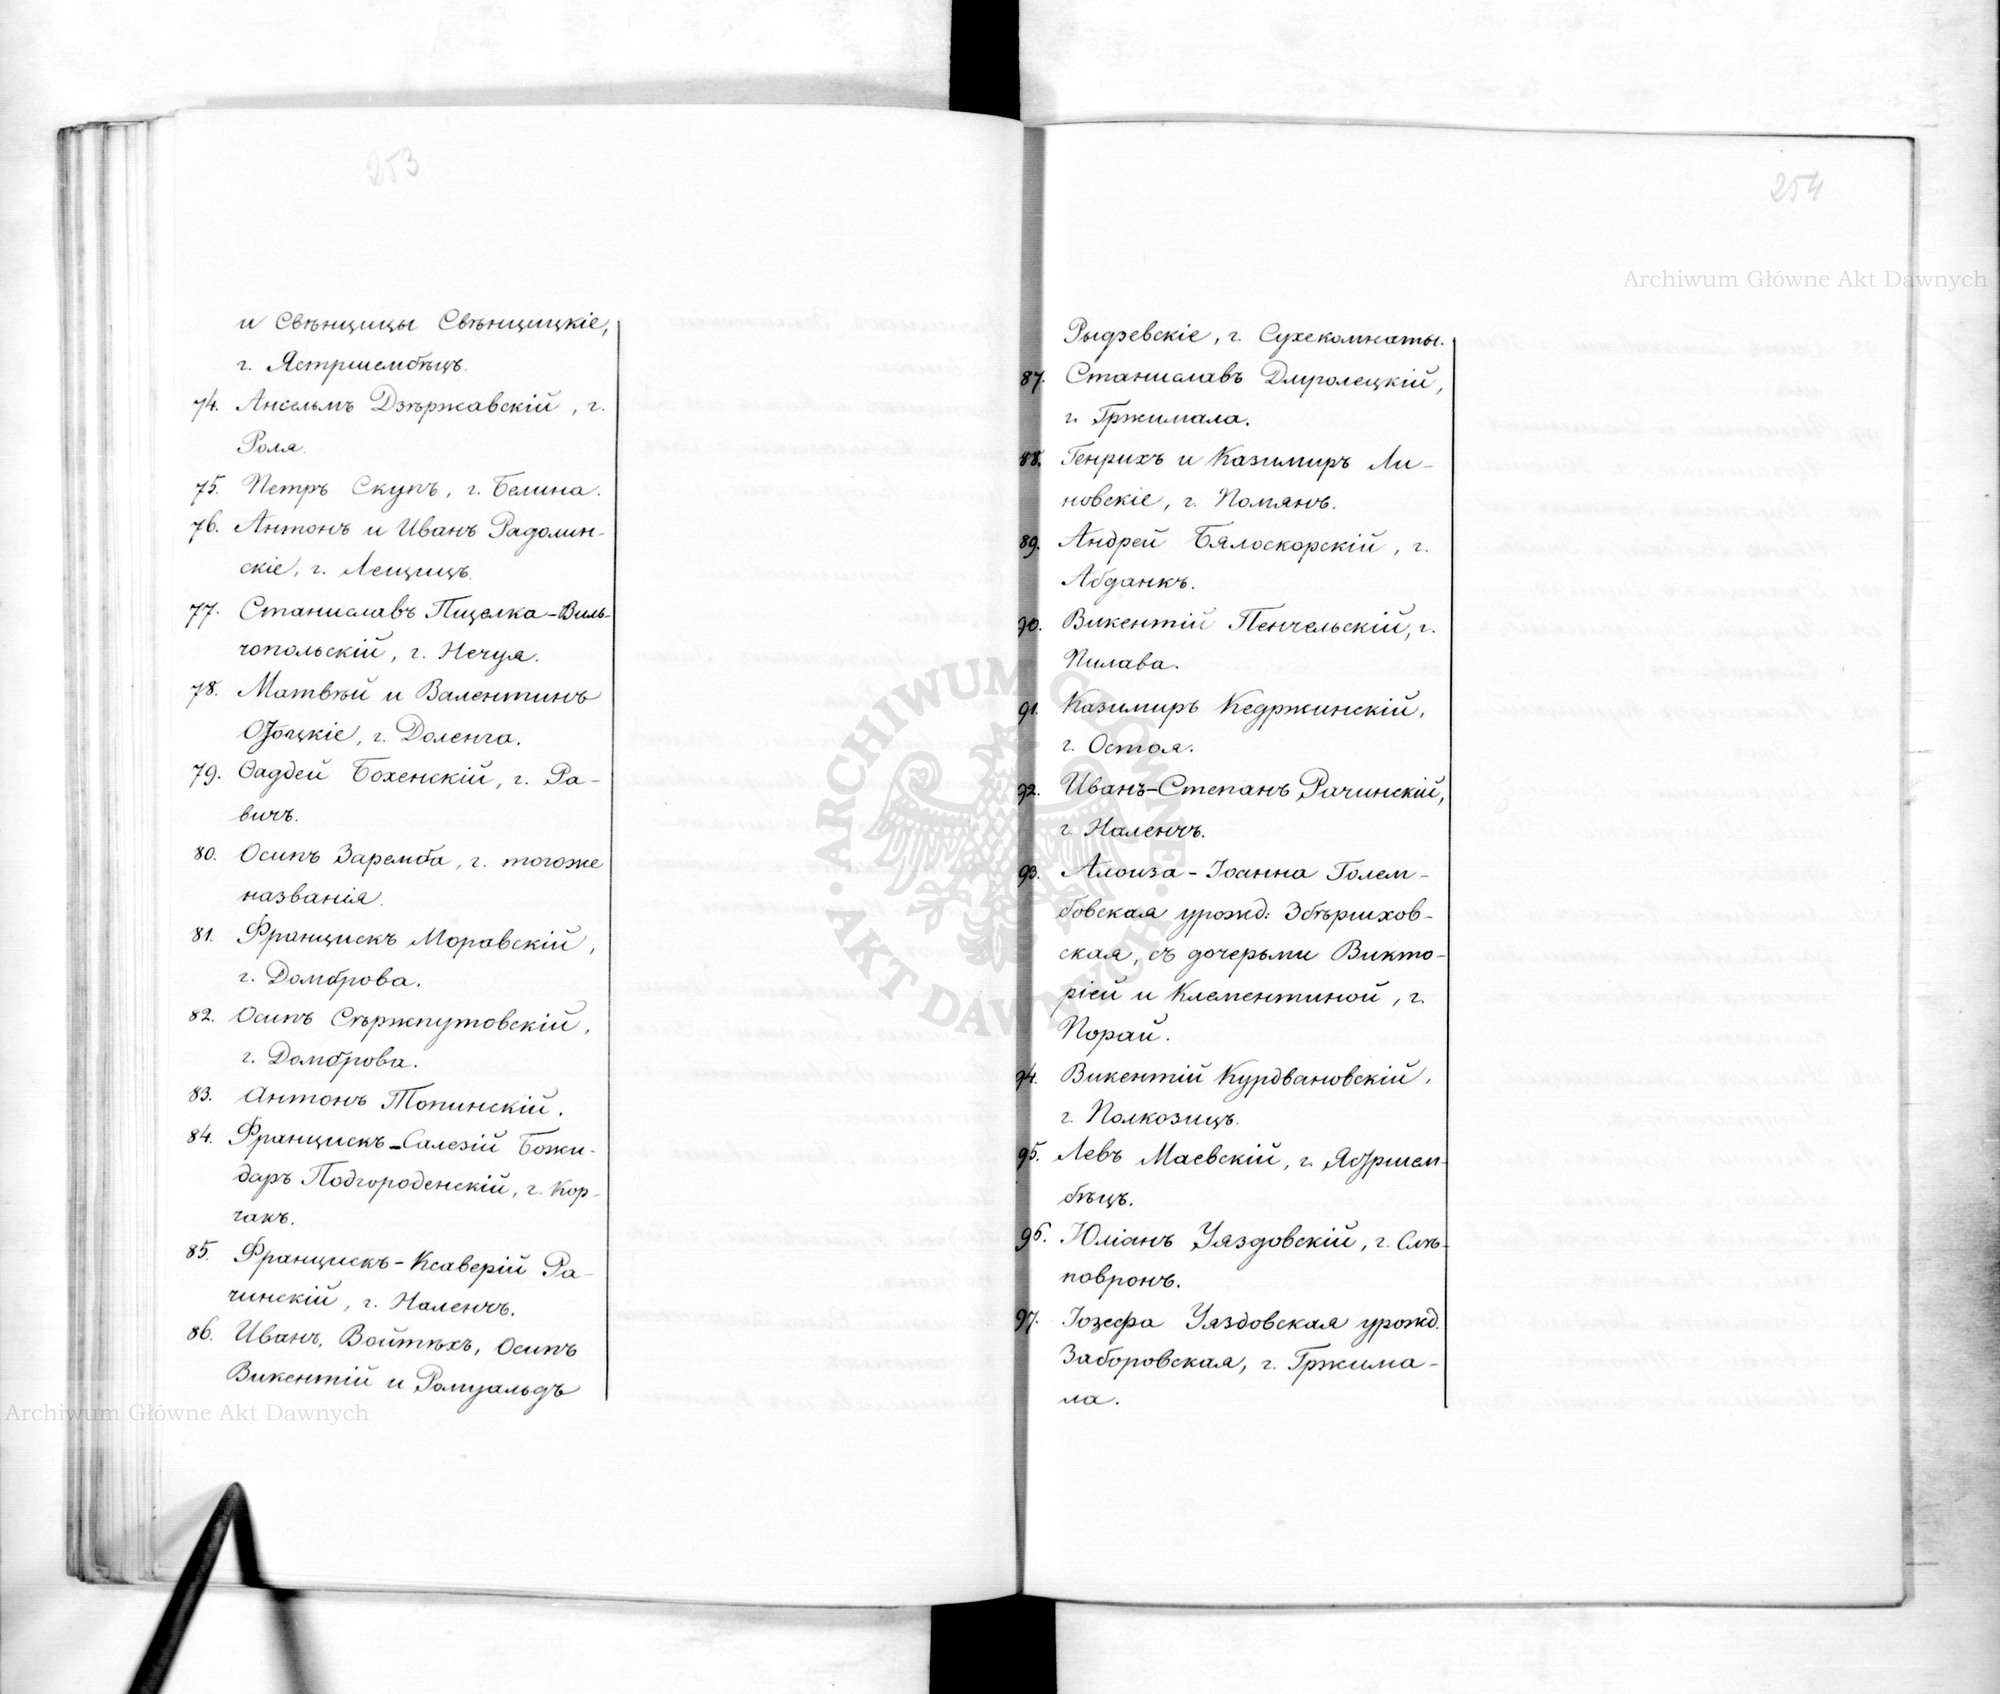 253
и Свѣнцицы Свѣнцицкіе,
г. Ястршембѣцъ.
74. Ансельмъ Дзѣржавскій, г.
Роля.
75. Петръ Скупъ, г. Белина.
76. Антонъ и Иванъ Радолин-
скіе, г. Лещицъ.
77. Станиславъ Пщелка-Виль-
чопольскій, г. Нечуя.
78. Матвѣй и Валентинъ
г. Доленга.
79. Ѳаддей Бохенскій, г. Ра-
вичъ.
80. Осипъ Заремба, г. тогоже
названія.
81. Францискъ Моравскій,
г. Домброва.
82. Осипъ Стържпутовскій,
г. Домброва.
83. Антонъ Топинскій.
84. Францискъ-Салезій Божи-
даръ Подгороденскій, г. Кор-
чакъ.
85. Францискъ-Ксаверій Ра-
чинскій, г. Наленчъ.
86. Иванъ, Войтѣхъ, Осипъ
Викентій и Ромуальдъ
254
Рыдзевскіе, г. Сухекомнаты.
87. Станиславъ Дмролецкій,
г. Гржимала.
88. Генрихъ и Казимиръ Ли-
новскіе, г. Помянъ.
89. Андрей Бялоскорскій, г.
Абданкъ.
90. Викентій Пенчельскій, г.
Пилава.
91. Казимиръ Кедржинскій,
г. Остоя.
92. Иванъ-Степанъ Рачинскій,
г. Наленчъ.
93. Алоиза-Іоанна Голем-
бовская урожд: Збѣршхов-
ская, съ дочерьми Викто-
ріей и Клементиной, г.
Порай.
94. Викентій Курдвановскій,
г. Полкозицъ.
95. Левъ Маевскій, г. Ястршем-
бѣцъ.
96. Юліанъ Уяздовскій, г. Слѣ-
повронъ.
97. Іозефа Уяздовская урожд.
Заборовская, г. Гржима-
ла.
Archiwum Główne Akt Dawnych
Archiwum Główne Akt Dawnych
ARCHIWUM GŁÓWNE AKT DAWNYCH